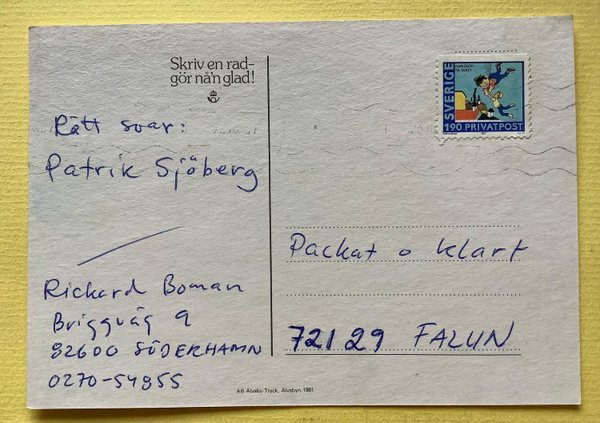 Skriv en rad-
gör nå'n glad!
SVERIGE
190 PRIVATPOST
Rätt svar:
Patrik Sjöberg
Rickard Boman
Briggväg 9
82600 SÖDERHAMN
0270-54955
Packat o klart
72129 FALUN
AB Älvsby Tryck, Älvsbyn 1981